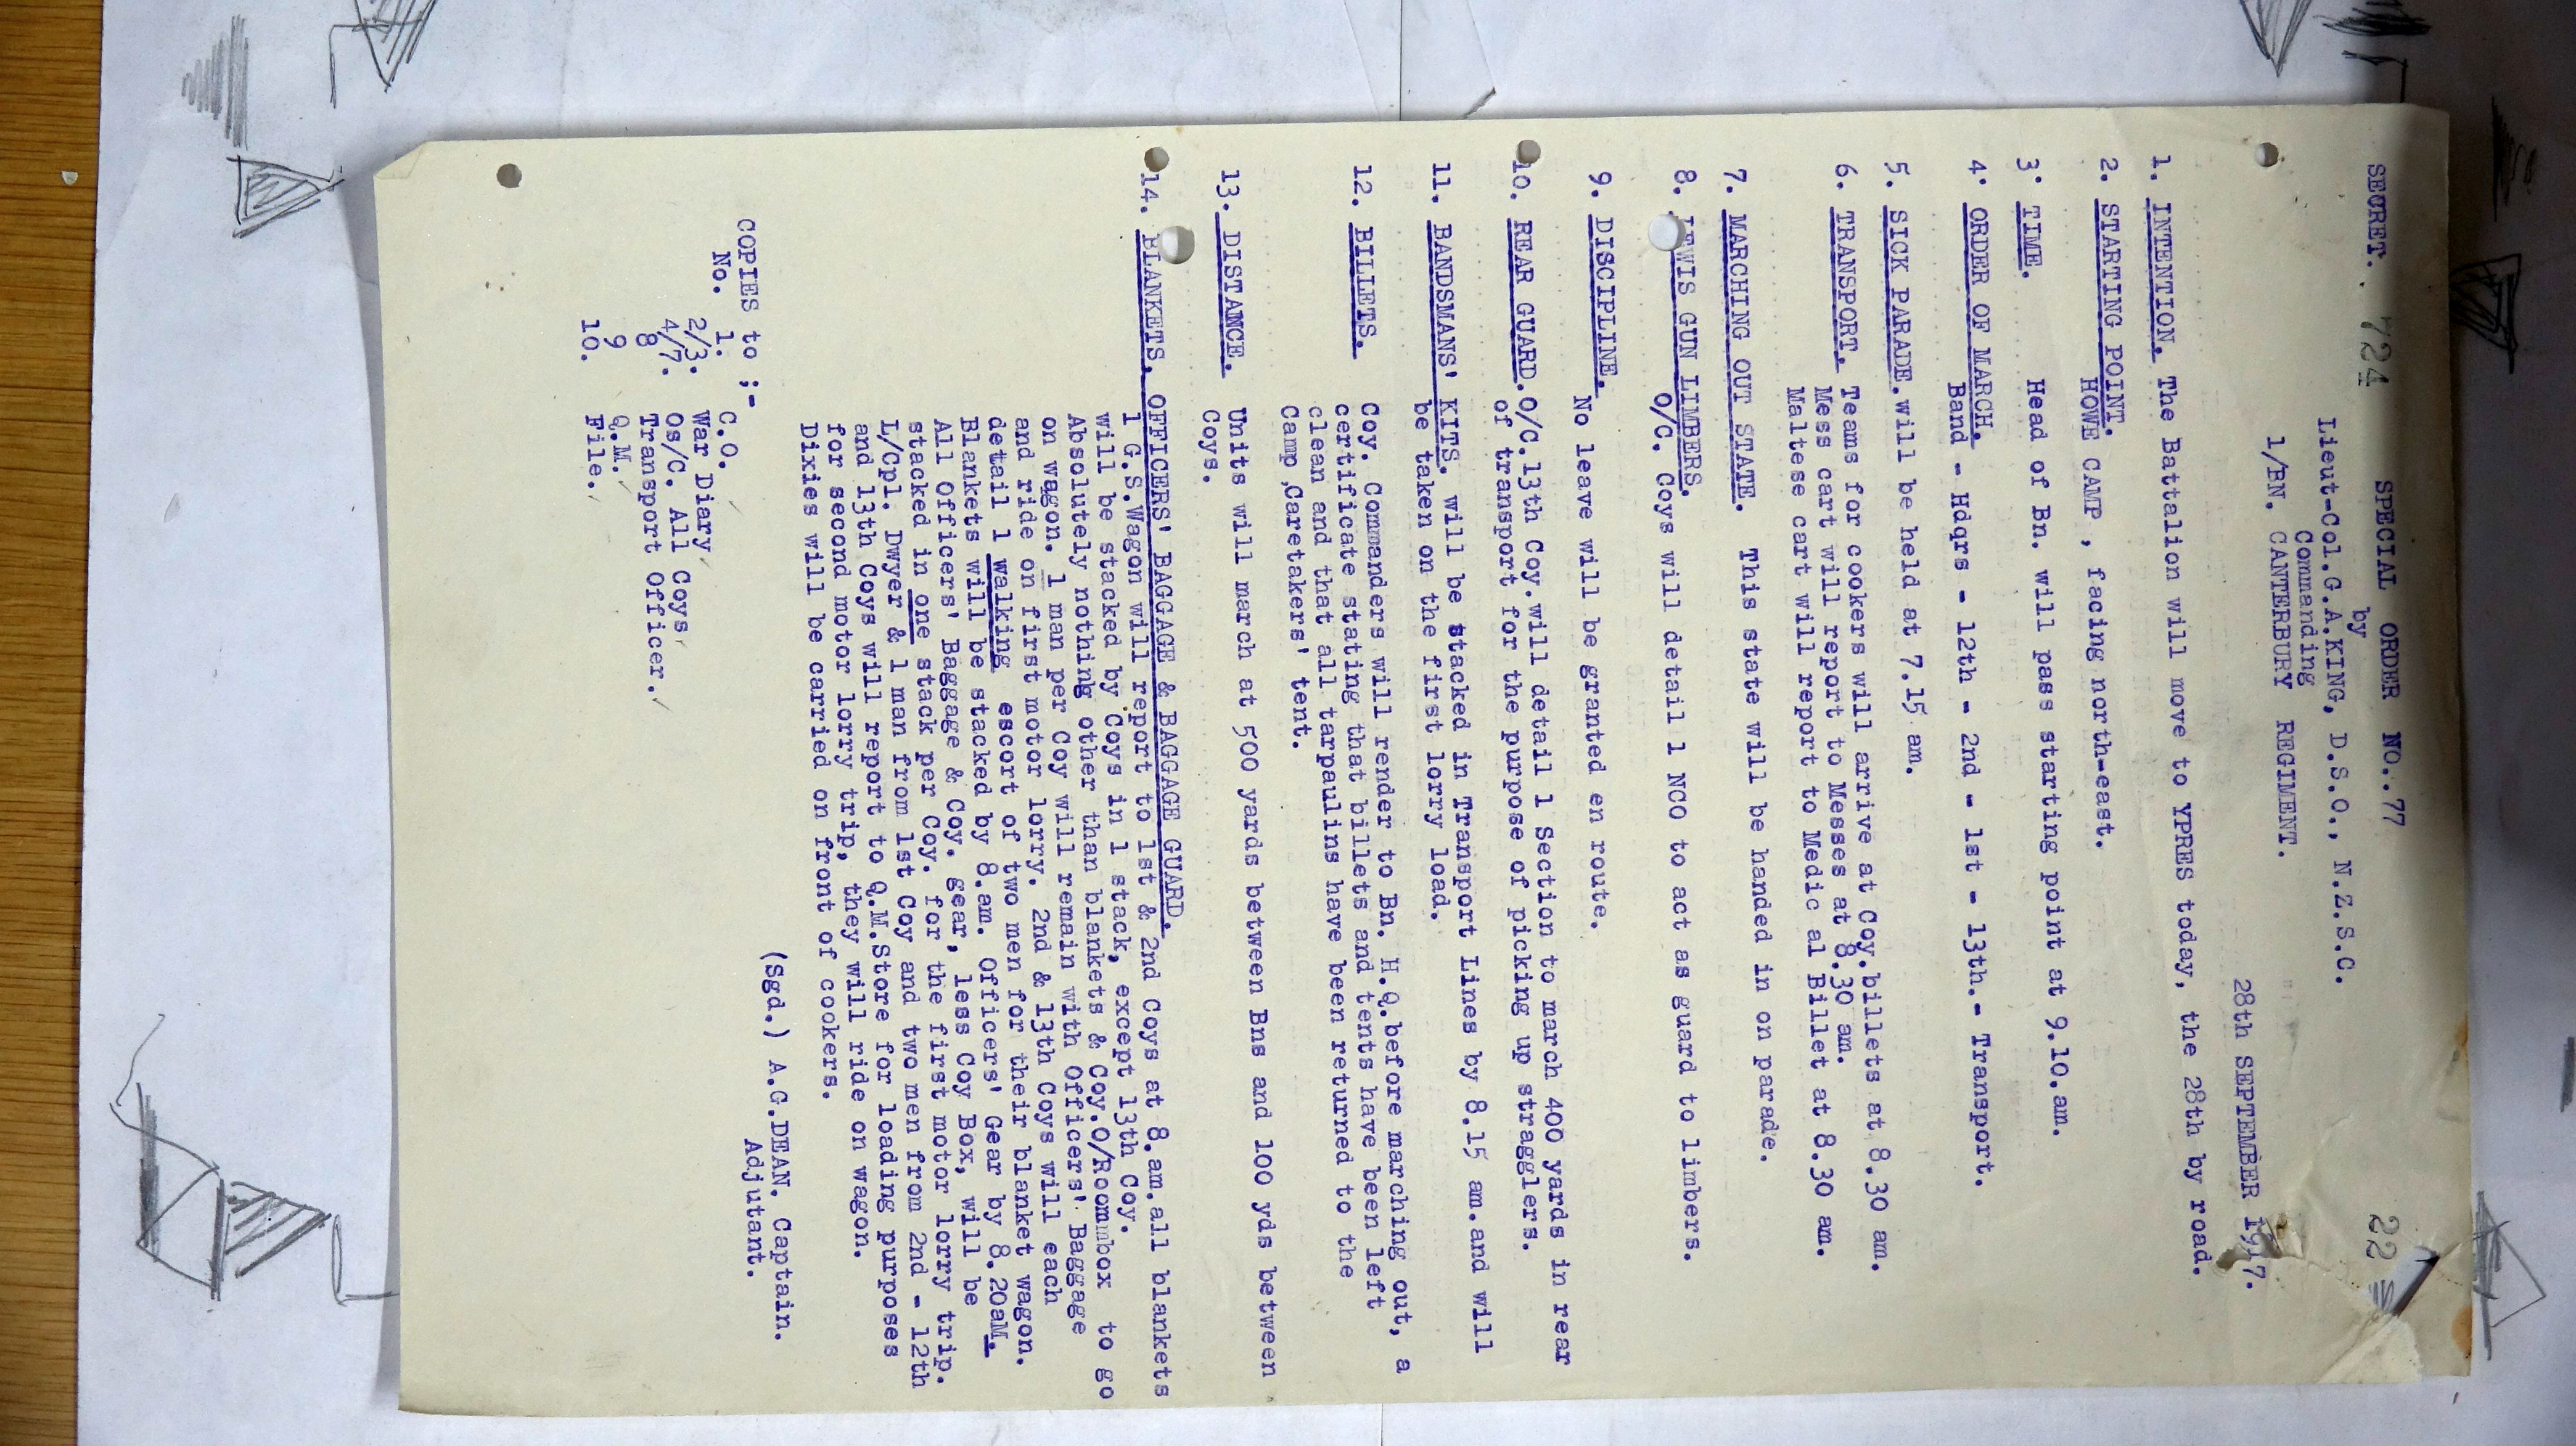 SECRET. 724 SPECIAL ORDER NO..77 22
by
Lieut-Col.G.A.KING, D.S.O., N.Z.S.C.
Commanding
1/BN. CANTERBURY REGIMENT.
28th SEPTEMBER 1917.
1. INTENTION. The Battalion will move to YPRES today, the 28th by road.
2. STARTING POINT.
HOWE CAMP , facing north-east.
3. TIME. Head of Bn. will pass starting point at 9.10.am.
4. ORDER OF MARCH.
Band - Hdqrs - 12th - 2nd - 1st - 13th.- Transport.
5. SICK PARADE.will be held at 7.15 am.
6. TRANSPORT. Teams for cookers will arrive at Coy.billets at 8.30 am.
Mess cart will report to Messes at 8.30 am.
Maltese cart will report to Medic al Billet at 8.30 am.
7. MARCHING OUT STATE. This state will be handed in on parade.
8. LEWIS GUN LIMBERS.
O/C. Coys will detail 1 NCO to act as guard to limbers.
9. DISCIPLINE.
No leave will be granted en route.
10. REAR GUARD.O/C.13th Coy.will detail 1 Section to march 400 yards in rear
of transport for the purpose of picking up stragglers.
11. BANDSMANS' KITS. will be stacked in Transport Lines by 8.15 am.and will
be taken on the first lorry load.
12. BILLETS. Coy. Commanders will render to Bn. H.Q.before marching out, a
certificate stating that billets and tents have been left
clean and that all tarpaulins have been returned to the
Camp ,Caretakers' tent.
13. DISTANCE. Units will march at 500 yards between Bns and 100 yds between
Coys.
14. BLANKETS, OFFICERS' BAGGAGE & BAGGAGE GUARD.
1 G.S.Wagon will report to 1st & 2nd Coys at 8.am.all blankets
will be stacked by Coys in 1 stack, except 13th Coy.
Absolutely nothing other than blankets & Coy.O/Roommbox to go
on wagon. 1 man per Coy will remain with Officers' Baggage
and ride on first motor lorry. 2nd & 13th Coys will each
detail 1 walking escort of two men for their blanket wagon.
Blankets will be stacked by 8.am. Officers' Gear by 8.20aM.
All Officers' Baggage & Coy. gear, less Coy Box, will be
stacked in one stack per Coy. for the first motor lorry trip.
L/Cpl. Dwyer & 1 man from 1st Coy and two men from 2nd - 12th
and 13th Coys will report to Q.M.Store for loading purposes
for second motor lorry trip, they will ride on wagon.
Dixies will be carried on front of cookers.
(Sgd.) A.G.DEAN. Captain.
Adjutant.
COPIES to ;-
No. 1. C.O.
2/3. War Diary
4/7. Os/C. All Coys
8 Transport Officer.
9 Q.M.
10. File.